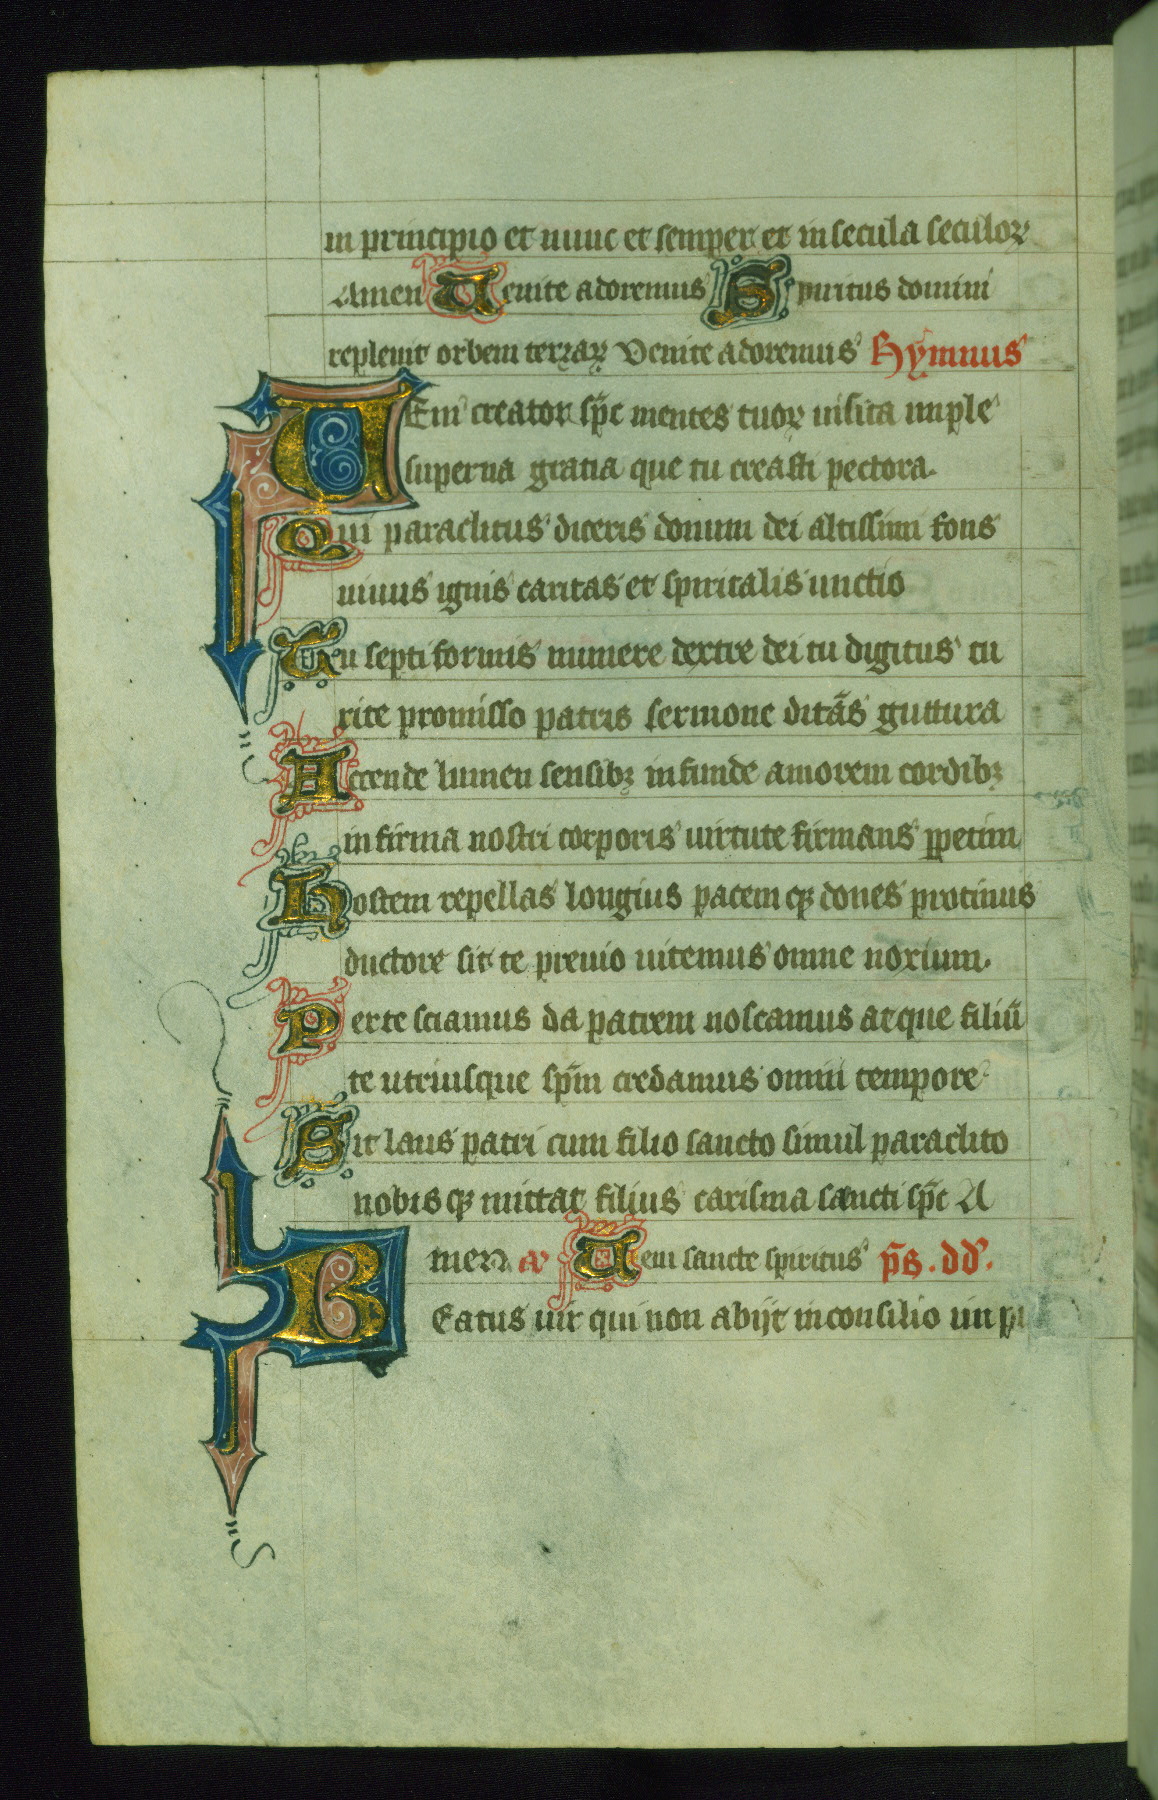 in principio et nunc et semper et in secula seculoꝝ
Amen Uenite adoremus Spiritus domini
repleuit orbem terraꝝ Venite adoremus Hymnus
UEni creator sp̃c mentes tuoꝝ uisita imple
superna gratia que tu creasti pectora.
Qui paraclitus diceris donum dei altissimi fons
uiuus ignis caritas et spiritalis unctio
Tu septiformis munere dextre dei tu digitus tu
rite promisso patris sermone ditãs guttura
Accende lumen sensibꝫ infunde amorem cordibꝫ
infirma nostri corporis uirtute firmans ꝑpetim
Hostem repellas longius pacem qꝫ dones protinus
ductore sit te preuio uitemus omne noxium.
Per te sciamus da patrem noscamus atque filiũ
te utriusque sp̃m credamus omni tempore
Sit laus patri cum filio sancto simul paraclito
nobis qꝫ mittat filius carisma sancti sp̃c A
men. Ueni sancte spiritus p̃s. dd̃.
BEatus uir qui non abijt in consilio impi